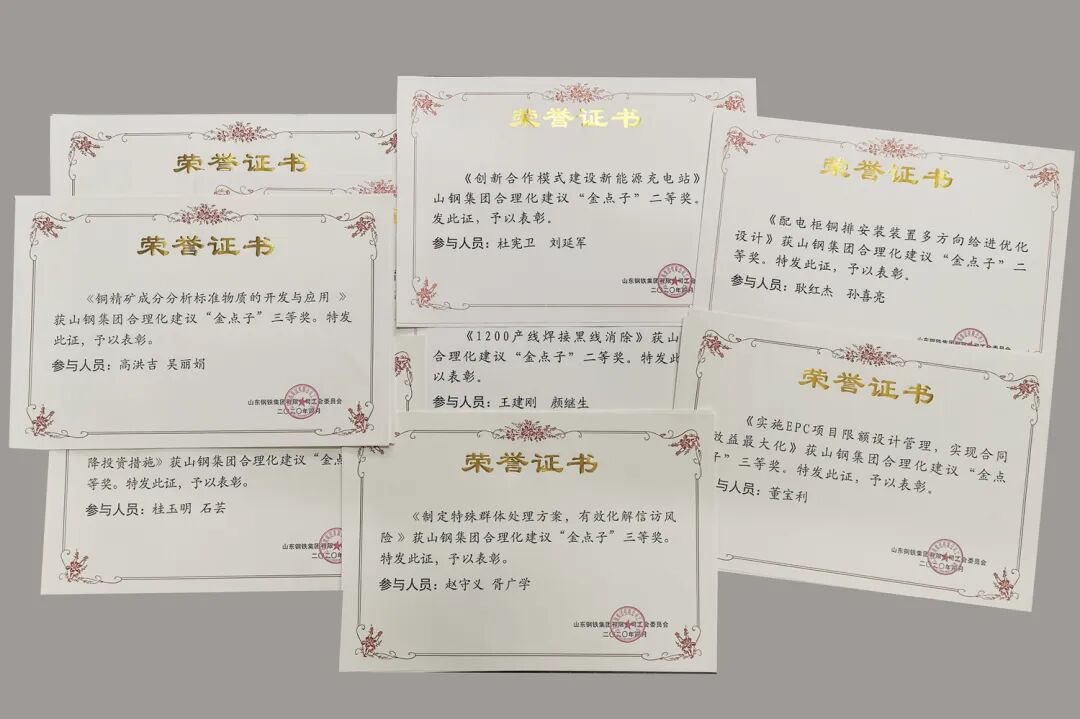 荣誉证书
荣誉证书
《铜精矿成分分析标准物质的开发与应用 》
获山钢集团合理化建议“金点子”三等奖。特发
此证，予以表彰。
参与人员：高洪吉 吴丽娟
山东钢铁集团有限公司工会委员会
二〇二〇年四月
降投资措施》获山钢集团合理化建议“金点
等奖。特发此证，予以表彰。
参与人员：桂玉明 石芸
山东钢铁集团有限
二〇二〇年
荣誉证书
《创新合作模式建设新能源充电站》
山钢集团合理化建议“金点子”二等奖。
发此证，予以表彰。
参与人员：杜宪卫 刘延军
山东钢铁集团有限
二〇二〇年四月
《1200产线焊接黑线消除》获山
合理化建议“金点子”二等奖。特发此
以表彰。
参与人员：王建刚 颜继生
荣誉证书
《制定特殊群体处理方案，有效化解信访风
险 》获山钢集团合理化建议“金点子”三等奖。
特发此证，予以表彰。
参与人员：赵守义 胥广学
山东钢铁集团有限公司工会委员会
二〇二〇年四月
荣誉证书
《配电柜铜排安装装置多方向给进优化
设计》获山钢集团合理化建议“金点子”二
等奖。特发此证，予以表彰。
参与人员：耿红杰 孙喜亮
山东钢铁集团有限公司工会委员会
荣誉证书
《实施EPC项目限额设计管理，实现合同
效益最大化》获山钢集团合理化建议“金点
子”三等奖。特发此证，予以表彰。
与人员：董宝利
山东钢铁集团有限公司工会委员会
二〇二〇年四月